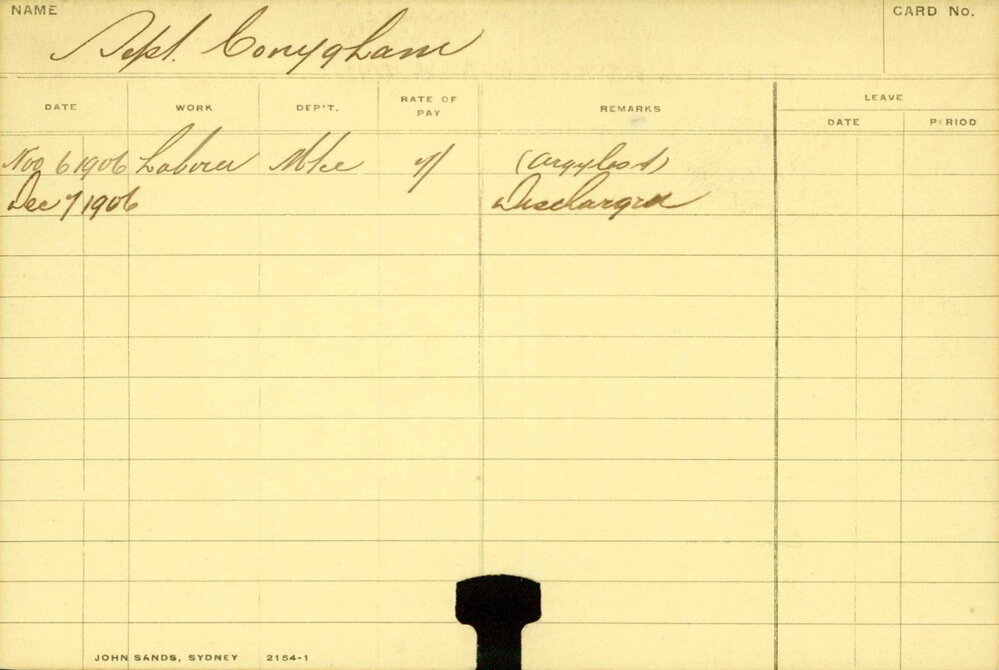 NAME
CARD No.
Sept. Conygham
DATE WORK DEP'T. RATE OF PAY REMARKS LEAVE
DATE PERIOD
Nov 6 1906 Laborer Mtce 7/ (Argyle St)
Dec 7 1906 Discharged
JOHN SANDS, SYDNEY 2154-1